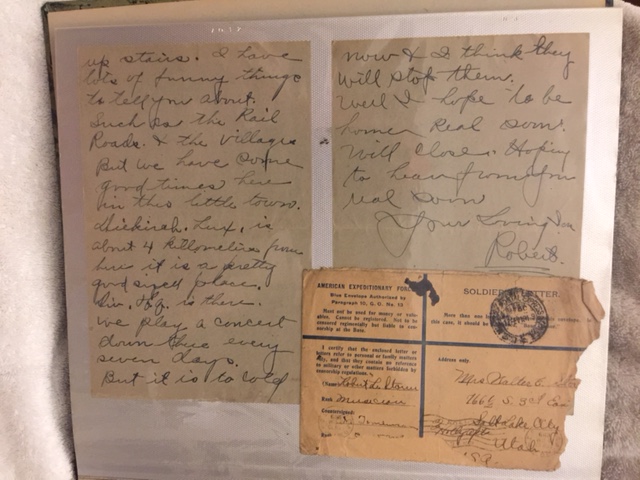 up stairs. I have
lots of funny things
to tell you about.
Such as the Rail
Roads. & the villages
But we have some
good times here
in this little town.
Diekirch. Lux, is
about 4 killometers from
here it is a pretty
good sized place.
Div. Hq. is there.
we play a concert
down there every
seven days.
But it is to cold
now & I think they
will stop them.
Well I hope to be
home Real soon.
Will close. Hoping
to hear from you
real soon
Your Loving Son
Robert.
AMERICAN EXPEDITIONARY
Blue Envelope Authorized by
Paragraph 10, G. O. No. 13
Must not be used for money or valu-
ables. Cannot be registered. Not to be
censored regimentally but liable to cen-
sorship at the Base.
I certify that the enclosed letter or
letters refer to personal or family matters
only, and that they contain no reference
to military or other matters forbidden by
censorship regulations.
(Name)
Rank Musician
Countersigned:
SOLDIER'S LETTER.
Address only.
Mrs
S.
Salt Lake City
Utah